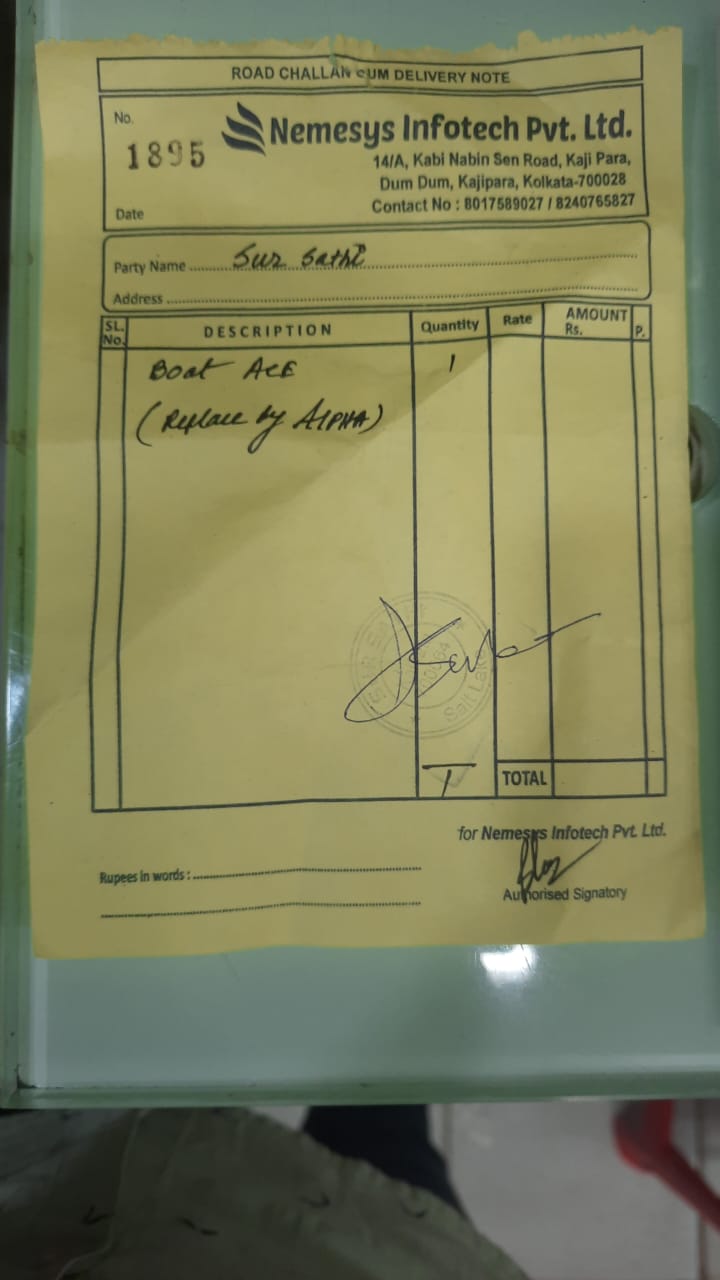 ROAD CHALLAN CUM DELIVERY NOTE
No.
1895
Nemesys Infotech Pvt. Ltd.
14/A, Kabi Nabin Sen Road, Kaji Para,
Dum Dum, Kajipara, Kolkata-700028
Contact No : 8017589027 / 8240765827
Date
Party Name Sur Sathi
Address
SL. No. DESCRIPTION Quantity Rate AMOUNT Rs. P.
Boat ACE 1
(Replace by ALPHA)
Salt Lake
1 TOTAL
for Nemesys Infotech Pvt. Ltd.
Rupees in words :
Authorised Signatory